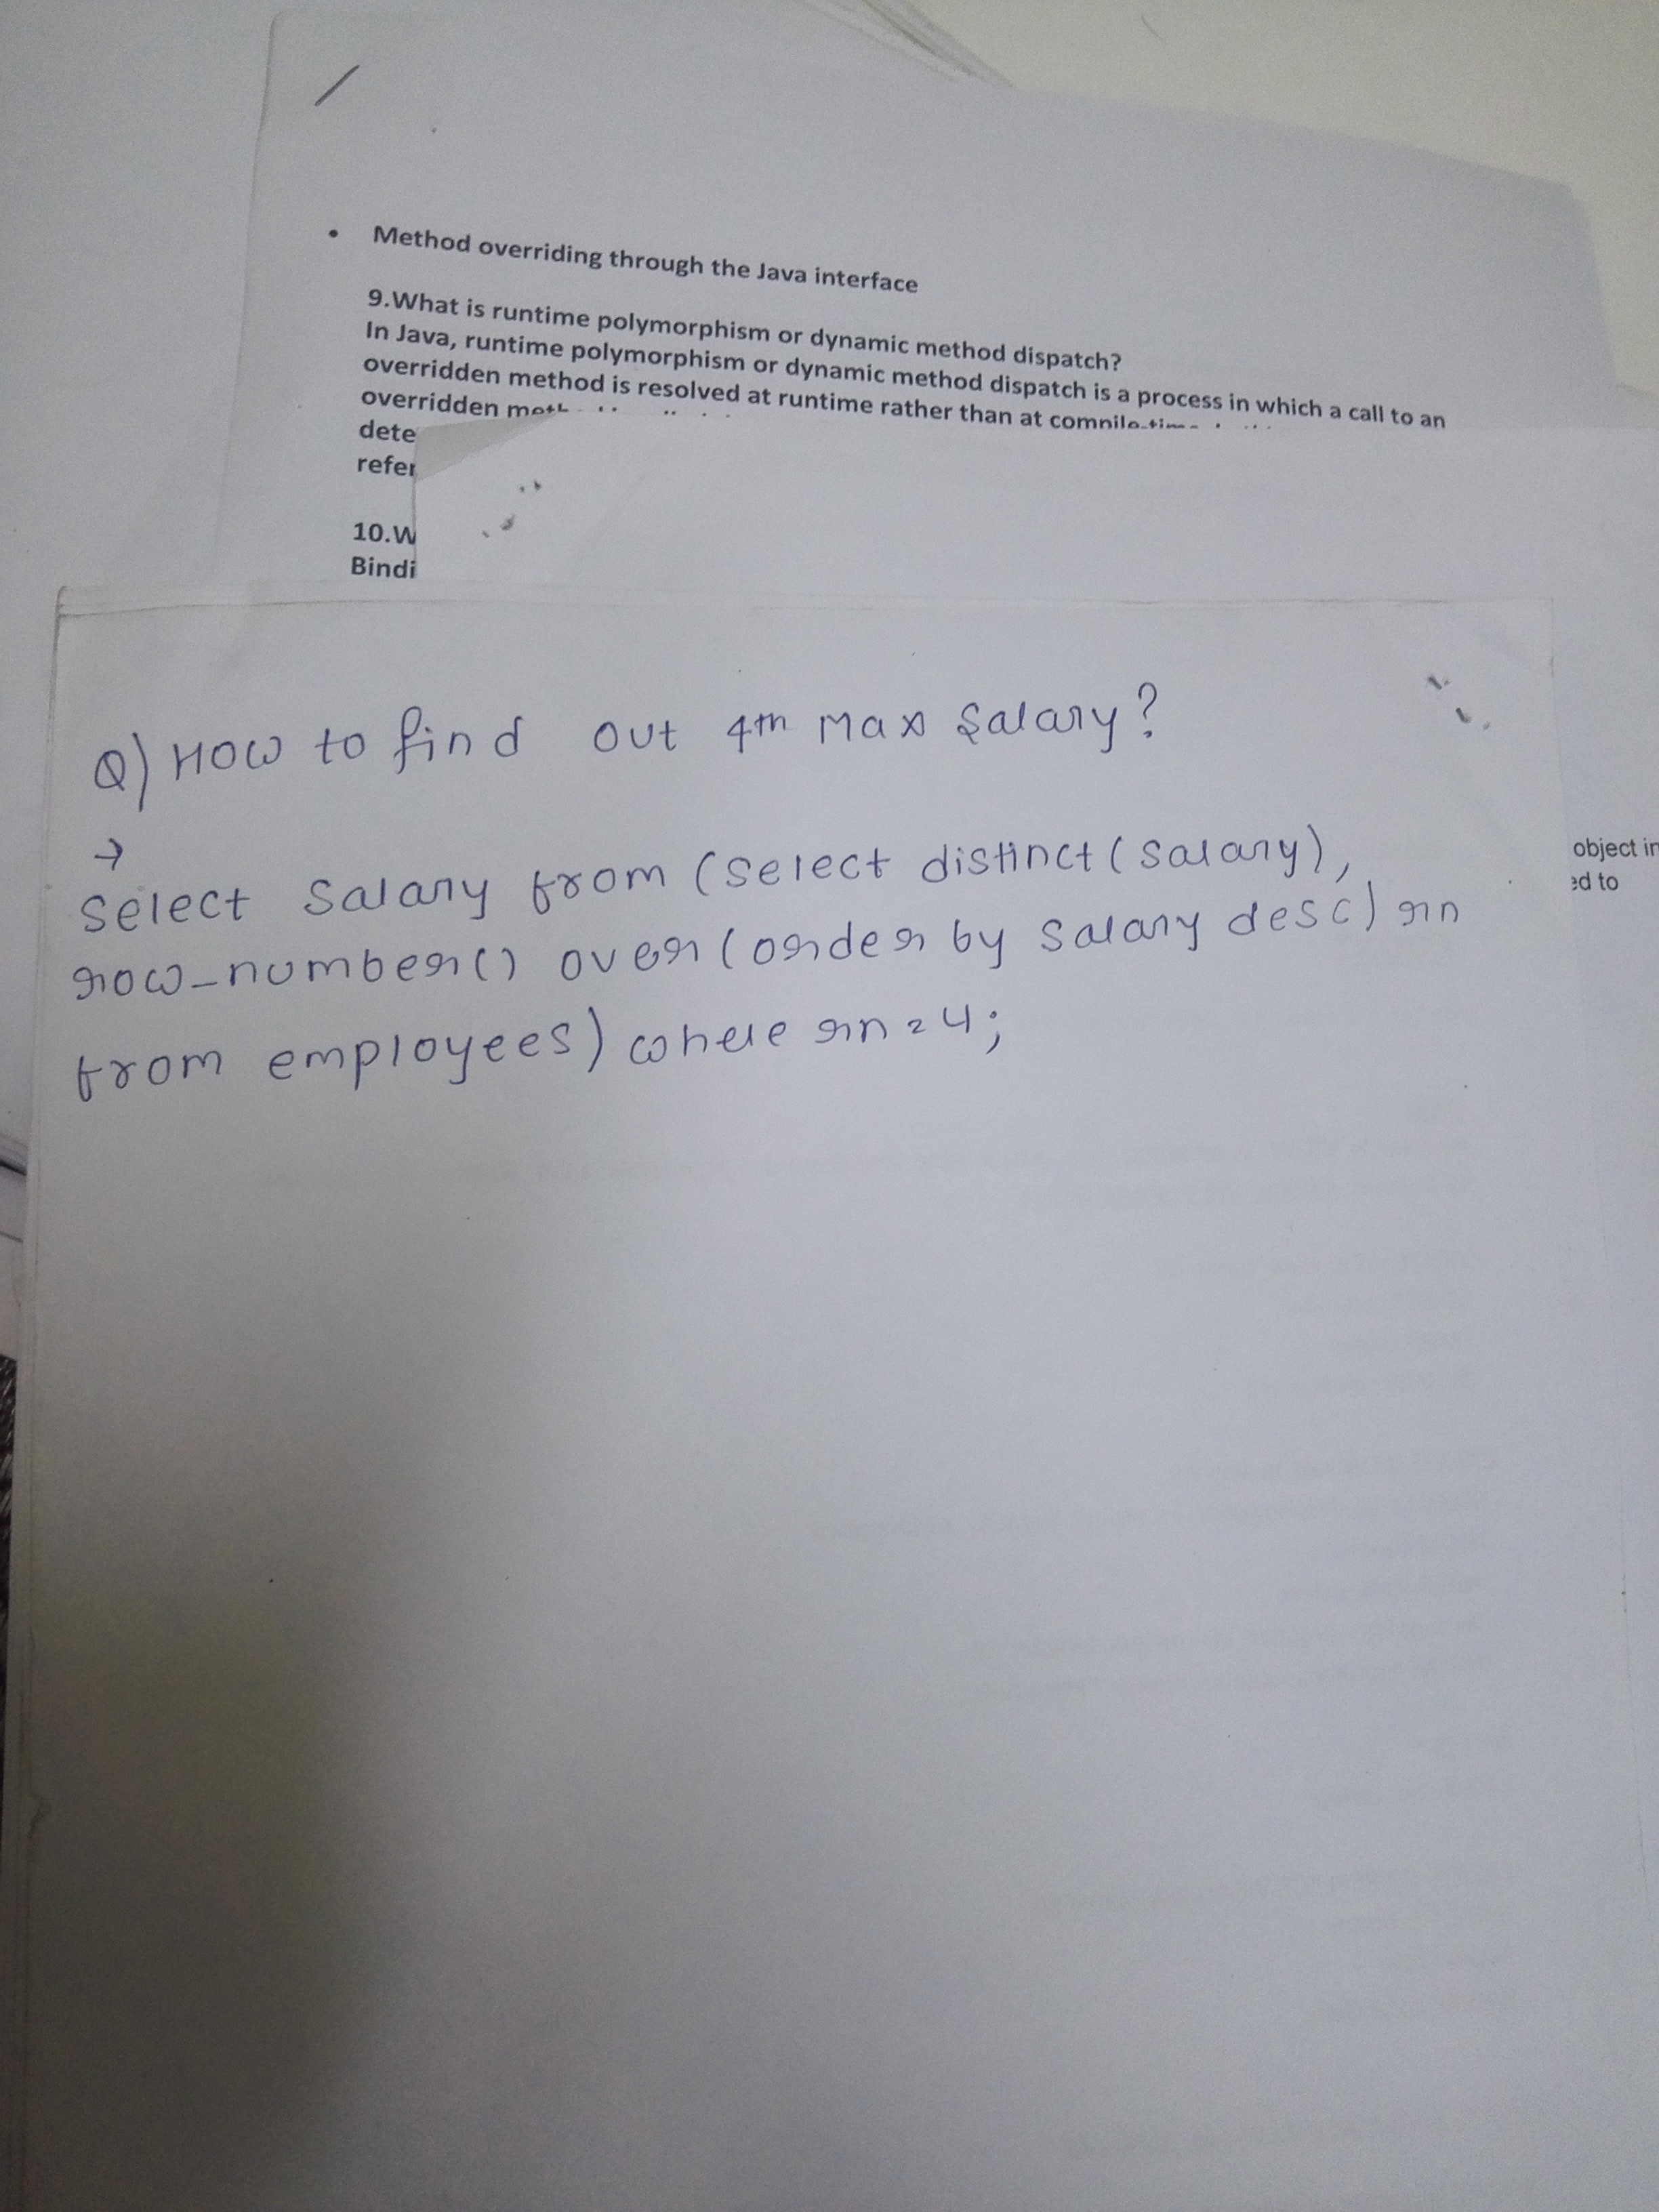 • Method overriding through the Java interface
9.What is runtime polymorphism or dynamic method dispatch?
In Java, runtime polymorphism or dynamic method dispatch is a process in which a call to an
overridden method is resolved at runtime rather than at compile-time.
overridden
dete
refer
10.W
Bindi
Q) How to find out 4th Max Salary?
→
select salary from (select distinct (salary),
row_number() over (order by salary desc) rn
from employees) where rn=4;
object in
ed to